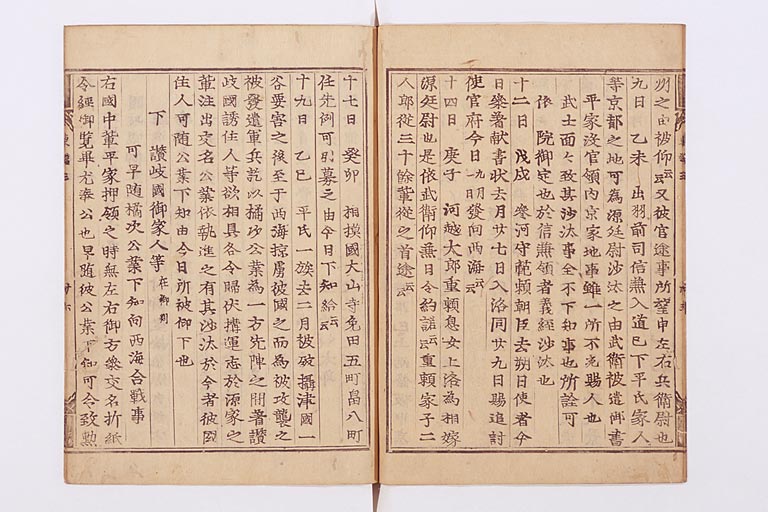 州之由被仰云云又彼官途事所望申左右兵衛尉也
九日　乙未　出羽前司信兼入道已下平氏家人
等京都之地可為源廷尉沙汰之由武衛被遣御書
平家没官領内京家地事雖一所不充賜人也
武士面々致其沙汰事全不下知事也所詮可
依　院御定也於信兼領者義經沙汰也
十二日　戊戌　參河守範頼朝臣去朔日使者今
日參著献書状去月廿七日入洛同廿九日賜追討
使官府今日九月一日發向西海云云
十四日　庚子　河越太郎重頼息女上洛為相嫁
源廷尉也是依武衛仰兼日令約諾云云重頼家子二
人郎從三十餘輩從之首途云云
十七日　癸卯　相摸國大山寺免田五町畠八町
任先例可引募之由今日下知給云云
十九日　乙巳　平氏一族去二月被破攝津國一
谷要害之後至于西海掠虜彼國之而為被攻襲之
被發遣軍兵訖以橘次公業為一方先陣之間著讃
岐國誘住人等欲相具各令歸伏搆運志於源家之
輩注出交名公業依執進之有其沙汰於今者彼國
住人可随公業下知由今日所被仰下也
下　讃岐國御家人等　在御判
可早随橘次公業下知向西海合戰事
右國中輩平家押領之時無左右御方參交名折紙
令經御覽畢尤奉公也早随彼公業下知可令致勲